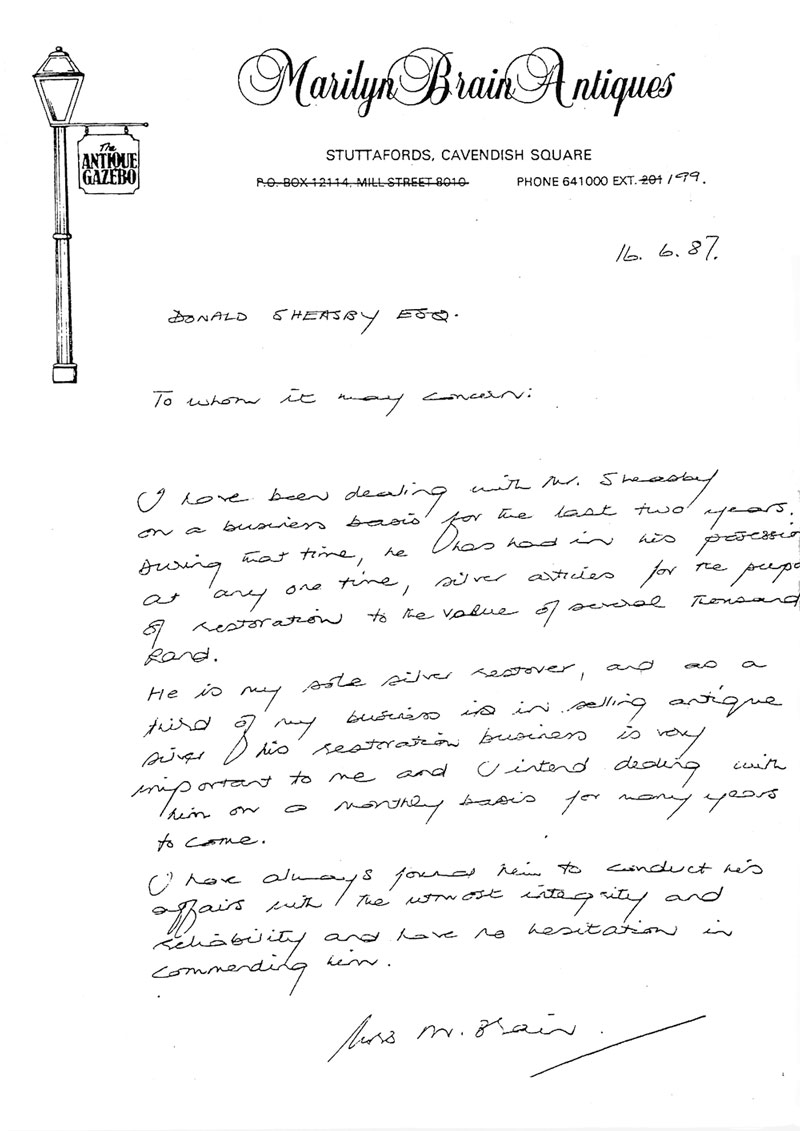 Marilyn Brain Antiques
The
ANTIQUE
GAZEBO
STUTTAFORDS, CAVENDISH SQUARE
P.O. BOX 12114, MILL STREET 8010 PHONE 641000 EXT. 201 / 199.
16. 6. 87.
DONALD SHEASBY ESQ.
To whom it may concern:
I have been dealing with Mr. Sheasby
on a business basis for the last two years.
During that time, he has had in his posessio
at any one time, silver articles for the purpo
of restoration to the value of several Thousand
Rand.
He is my sole silver restorer, and as a
third of my business is in selling antique
silver his restoration business is very
important to me and I intend dealing with
him on a monthly basis for many years
to come.
I have always found him to conduct his
affairs with the utmost integrity and
reliability and have no hesitation in
commending him.
Mrs M. Brain.